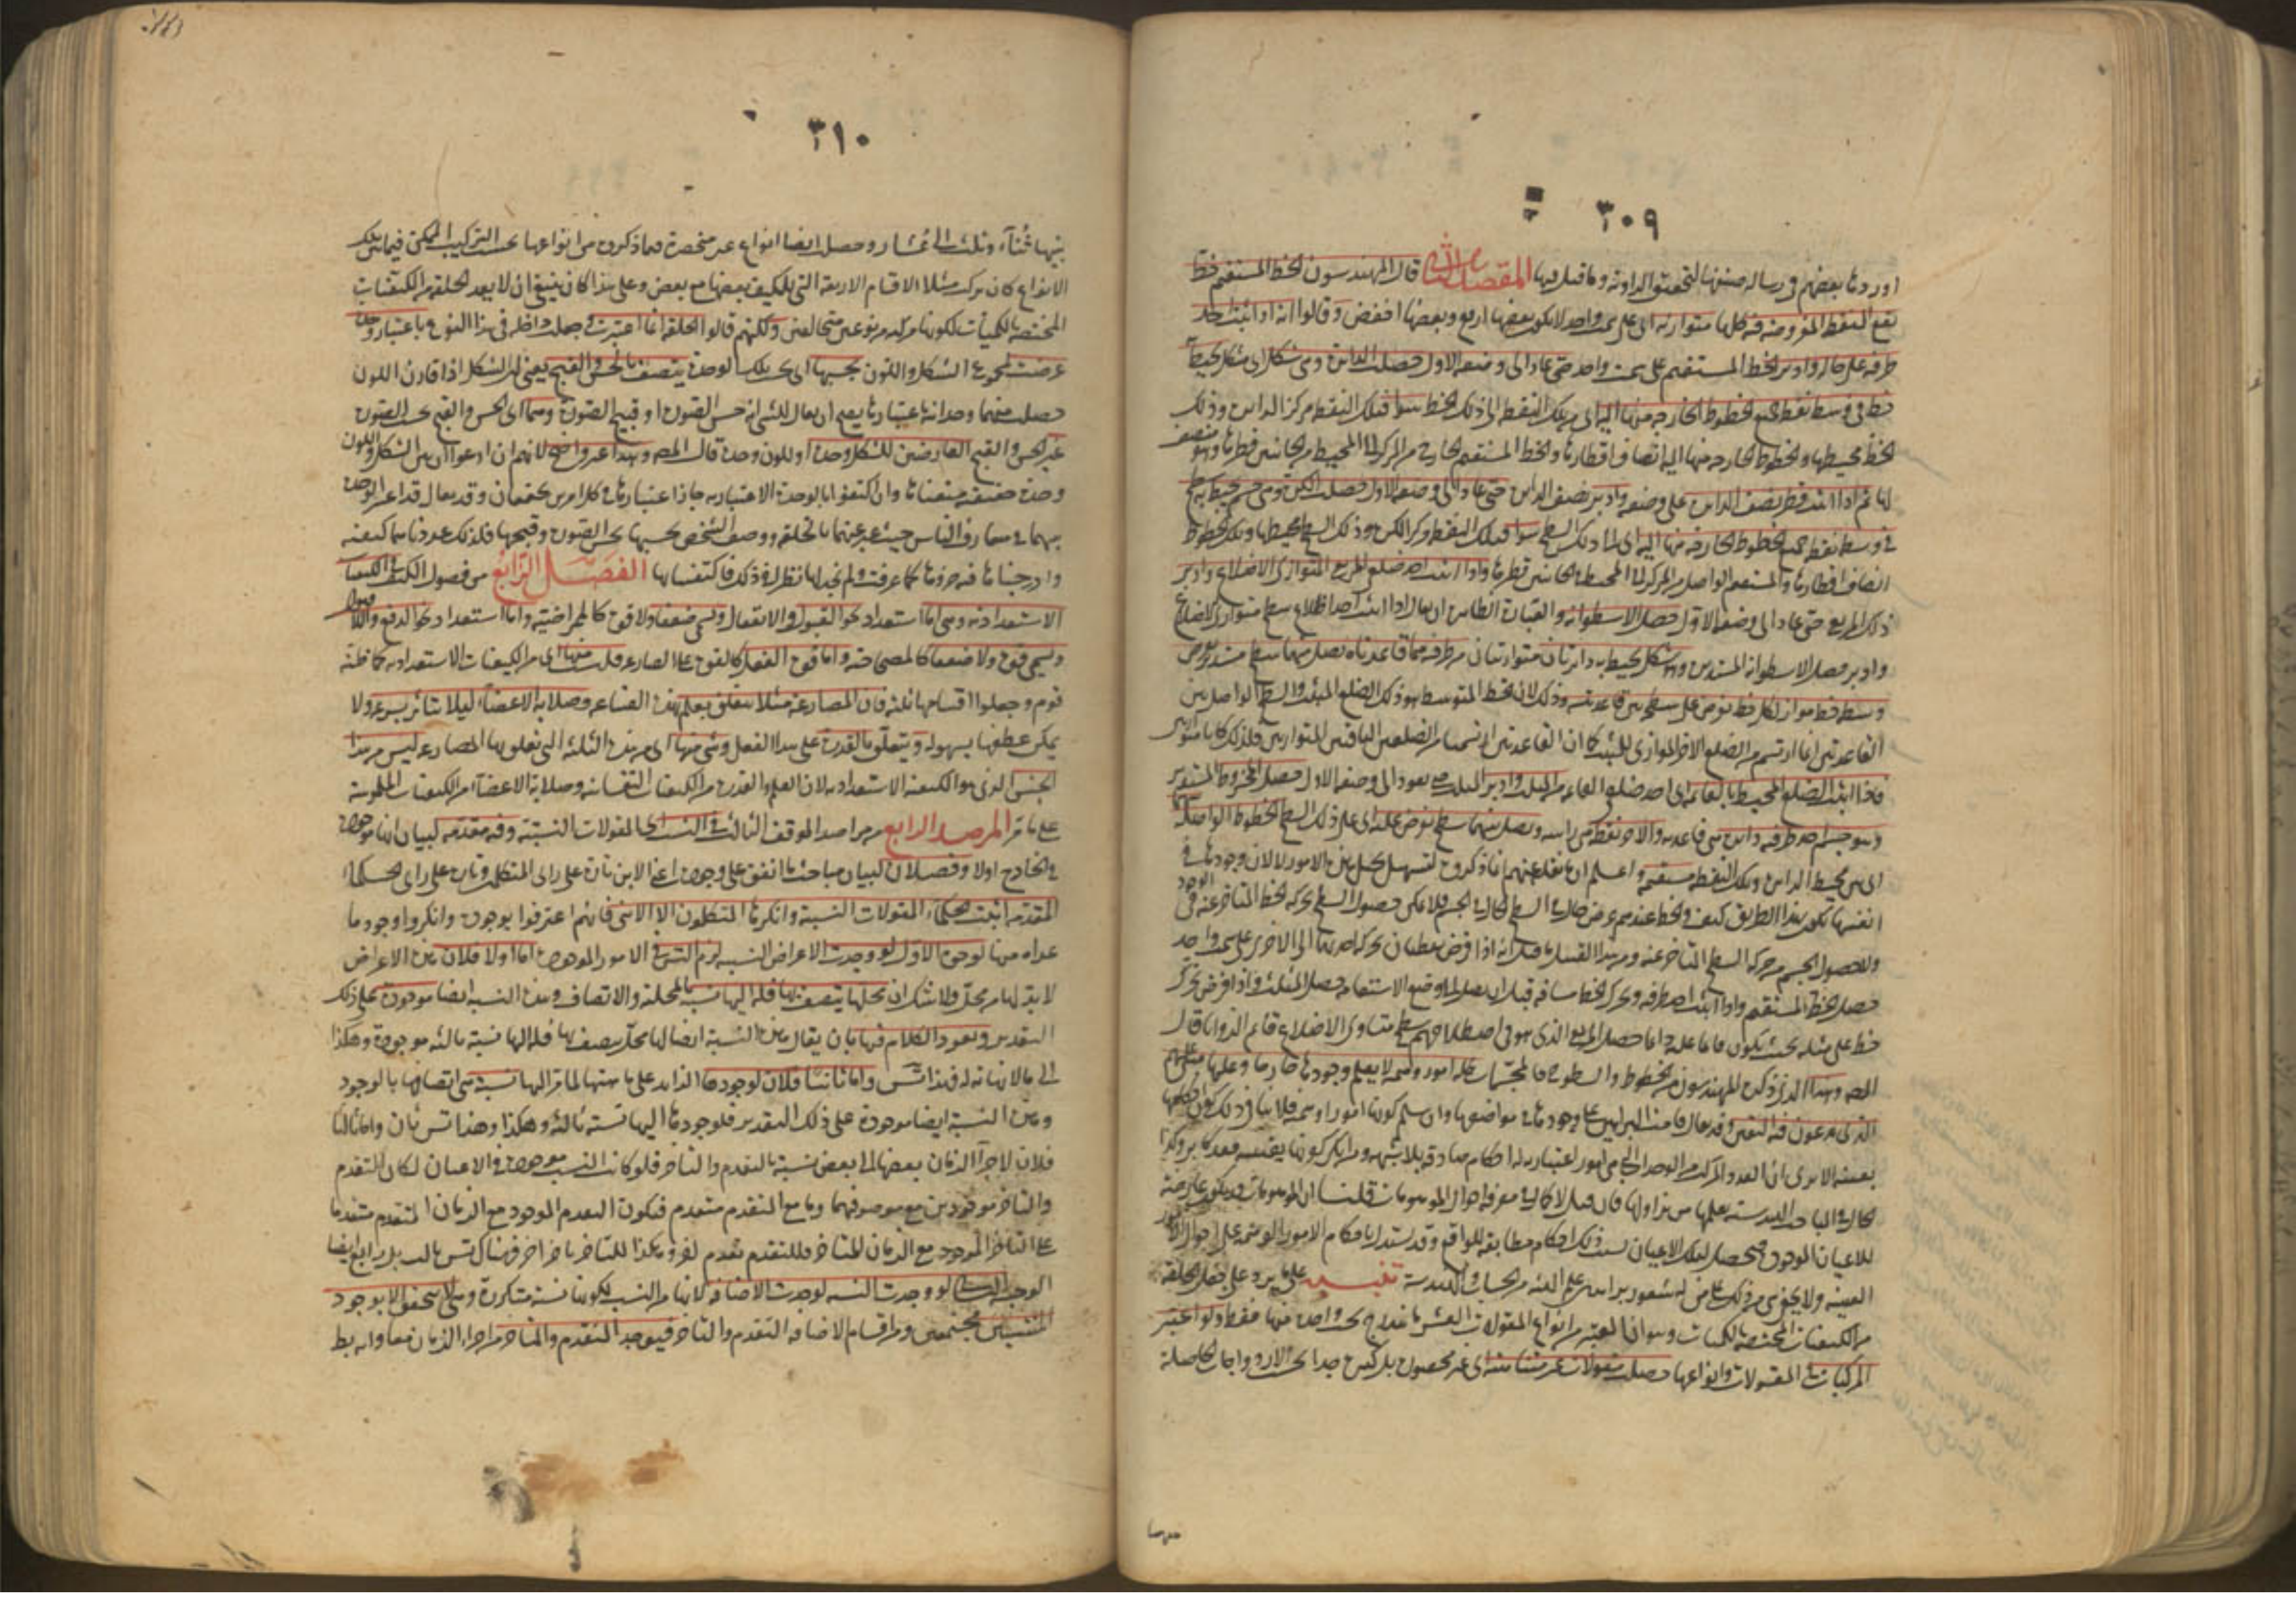 ٣٠٩
اوردها بعضهم في رسالة صنفها لتحقيق الزاوية وما قيل فيها المقصد الثاني قال المهندسون الخط المستقيم خط
تقع النقط المفروضة فيه كلها متوازية اي على سمت واحد لا يكون بعضها ارفع وبعضها اخفض وقالوا انه اذا اثبت احد
طرفيه على حاله وادير الخط المستقيم على سمت واحد حتى عاد الى وضعه الاول حصلت الدائرة وهي شكل اي مسطح يحيط به
خط في وسطه نقطة جميع الخطوط الخارجة منها اليه اي من تلك النقطة الى ذلك الخط سواء فتلك النقطة مركز الدائرة وذلك
الخط محيطها والخطوط الخارجة منها اليه انصاف اقطارها والخط المستقيم الخارج من المركز الى المحيط من الجانبين قطرها وهو منصف
لها ثم اذا اثبت قطر نصف الدائرة على وضعه وادير نصف الدائرة حتى عاد الى وضعه الاول حصلت الكرة وهي جسم يحيط به سطح
في وسطه نقطة جميع الخطوط الخارجة منها اليه اي الى ذلك السطح سواء فتلك النقطة مركز الكرة وذلك السطح محيطها وتلك الخطوط
انصاف اقطارها والمستقيم الواصل من المركز الى المحيط في الجانبين قطرها واذا اثبت احد ضلع المربع المتوازي الاضلاع وادير
ذلك المربع حتى عاد الى وضعه الاول حصل الاسطوانة والعبارة الظاهرة ان يقال اذا اثبت احد اضلاع سطح متوازي الاضلاع
وادير حصل الاسطوانة المستديرة وهو شكل يحيط به دائرتان متوازيتان من طرفيه هما قاعدتاه يصل بينهما سطح مستدير يفرض
وسطه خط مواز لكل خط يفرض على سطحه بين قاعدتيه وذلك لان الخط المتوسط هو ذلك الضلع المثبت والسطح الواصل بين
القاعدتين انما ارتسم من الضلع الاخر الموازي للمثبت كما ان القاعدتين ارتسمتا من الضلعين الباقيين المتوازيين فلذلك كانا متوازيين
فاذا اثبت الضلع المحيط بالقائمة اي احد ضلعي القائمة من المثلث وادير المثلث حتى يعود الى وضعه الاول حصل المخروط المستدير
وهو جسم احد طرفيه دائرة هي قاعدته والاخر نقطة هي راسه ويصل بينهما سطح يفرض عليه اي على ذلك السطح الخطوط الواصلة
اي بين محيط الدائرة وتلك النقطة مستقيمة واعلم ان ما نقله عنهم انما ذكروه لتسهيل تخيل هذه الامور لا لان وجودها في
انفسها يكون بهذا الطريق كيف والخط عندهم عرض حال في السطح الحال في الجسم فلا يمكن حصول السطح بحركة الخط المتاخر عنه في الوجود
ولا حصول الجسم من حركة السطح المتاخر عنه ومن هذا القبيل ما قيل انه اذا فرض نقطتان تحركت احديهما الى الاخرى على سمت واحد
حصل الخط المستقيم واذا اثبت احد طرفيه وتحرك الخط مسافة قبل ان يصل الى وضع الاستقامة حصل المثلث واذا فرض تحرك
خط على مثله بحيث يكون قائما عليه دائما حصل المربع الذي هو في اصطلاحهم سطح متساوي الاضلاع قائم الزوايا قال
المصـ وهذا الذي ذكره المهندسون من الخطوط والسطوح والمجسمات كله امور وهمية لا يعلم وجودها خارجا وعليها مبنى علمهم
الذي يدعون فيه اليقين وقد يقال اقامت البراهين على وجودها في مواضعها وان سلم كونها امورا وهمية فلا ينافي ذلك كون احكامها
يقينية الا يرى ان العدد المركب من الوحدات التي هي امور اعتبارية له احكام صادقة بلا شبهة ومن انكر كونها يقينية فقد كابر وكذا
الحال في المباحث الهندسية يعلمها من يزاولها فان قيل لا كمال في معرفة احوال الموهومات قلنا ان الموهومات قد يكون عارضة
للاعيان الموجودة فيحصل لتلك الاعيان بسبب ذلك احكام مطابقة للواقع وقد يستدل باحكام الامور الوهمية على احوال الامور
العينية ولا يخفى من ذلك على من له شعور براسه علم الهيئة من الحساب والهندسة تنبيه على ما يرد على جعل الخلقة
من الكيفيات المختصة بالكميات وهو ان المعتبر من انواع المقولات العشر ما اندرج تحت واحدة منها فقط ولو اعتبر
المركبات في المقولات وانواعها حصلت مقولات غير متناهية اي غير محصورة بل كثيرة جدا بحسب الازدواجات الحاصلة
بينها
٣١٠
بينها ثناء وثلاث الى عشار وحصل ايضا انواع غير منحصرة فيما ذكروه من انواعها بحسب التركيب الممكن فيما بين تلك
الانواع كان يركب مثلا الاقسام الاربعة التي للكيف بعضها مع بعض وعلى هذا كان ينبغي ان لا يعد الخلقة من الكيفيات
المختصة بالكميات لكونها مركبة من نوعين متخالفين ولكنهم قالوا الخلقة انما اعتبرت وجعلت داخلة في هذا النوع باعتبار وحدة
عرضت لمجموع الشكل واللون بحسبها اي بحسب تلك الوحدة يتصف بالحسن والقبح يعني ان الشكل اذا قارن اللون
حصلت منهما وحدانية باعتبارها يصح ان يقال للشئ انه حسن الصورة او قبيح الصورة وهما اي الحسن والقبح بحسب الصورة
غير الحسن والقبح العارضين للشكل وحده او للون وحده قال المصـ وهذا غير واضح لانهم ان ادعوا ان بين الشكل واللون
وحدة حقيقية منعناها وان اكتفوا بالوحدة الاعتبارية جاز اعتبارها في كل امرين يجتمعان وقد يقال قد اعتبر الوحدة
بينهما في متعارف الناس حيث عبر عنهما بالخلقة ووصف الشخص بحسبها بحسن الصورة وقبحها فلذلك عددناهما كيفية
وادرجناها فيه حذوها كما عرفت ولم نجد لها نظيرا في ذلك فاكتفينا بها الفصل الرابع من فصول الكيف في الكيفيات
الاستعدادية وهي اما استعداد نحو القبول والانفعال وتسمى ضعفا ولا قوة كالممراضية واما استعداد نحو الدفع واللاقبول
وتسمى قوة ولا ضعفا كالمصحاحية واما قوة الفعل كالقوة على المصارعة فليست منها اي من الكيفيات الاستعدادية كما ظنه
قوم وجعلوا اقسامها ثلثة فان المصارعة مثلا يتعلق بعلم هذه الصناعة وصلابة الاعضاء ليلا يتاثر بسرعة ولا
يمكن عطفها بسهولة ويتعلق بالقدرة على هذا الفعل وشئ منها اي من هذه الثلثة التي تعلق بها المصارعة ليس من هذا
الجنس الذي هو الكيفية الاستعدادية لان العلم والقدرة من الكيفيات النفسانية وصلابة الاعضاء من الكيفيات الملموسة
على ما مر المرصد الرابع من مراصد الموقف الثالث في النسب اي المقولات النسبية وفيه مقدمة لبيان انها موجودة
في الخارج اولا وفصلان لبيان مباحث ما اتفق على وجوده اعني الاين تارة على راي المتكلم وتارة على راي الحكماء
المقدمة اثبت الحكماء المقولات النسبية وانكرها المتكلمون الا الاين فانهم اعترفوا بوجوده وانكروا وجود ما
عداه منها لوجوه الاول لو وجدت الاعراض النسبية لزم التس في الامور الموجودة اما اولا فلان هذه الاعراض
لا بد لها من محل ولا شك ان محلها يتصف بها فله اليها نسبة بالمحلية والاتصاف وهذه النسبة ايضا موجودة على ذلك
التقدير ويعود الكلام فيها بان يقال هذه النسبة ايضا لها محل يتصف بها فله اليها نسبة ثالثة موجودة وهكذا
الى ما لا نهاية له فهذا تس واما ثانيا فلان لوجودها الزايد على ماهيتها لما مر اليها نسبة هي اتصافها بالوجود
وهذه النسبة ايضا موجودة على ذلك التقدير فلوجودها اليها نسبة ثالثة وهكذا وهذا تس ثان واما ثالثا
فلان لاجزاء الزمان بعضها الى بعض نسبة بالتقدم والتاخر فلو كانت النسب موجودة في الاعيان لكان التقدم
والتاخر موجودين مع موصوفيهما وما مع المتقدم متقدم فيكون التقدم الموجود مع الزمان المتقدم متقدما
على التاخر الموجود مع الزمان المتاخر فللتقدم تقدم اخر وهكذا للتاخر تاخر اخر فهناك تس ثالث بل رابع ايضا
الوجه الثاني لو وجدت النسبة لوجدت الاضافة لانها من النسب لكونها نسبة متكررة وهي لا يتحقق الا بوجود
المنتسبين مجتمعين ومن اقسام الاضافة التقدم والتاخر فيوجد المتقدم والمتاخر من اجزاء الزمان معا وانه بط